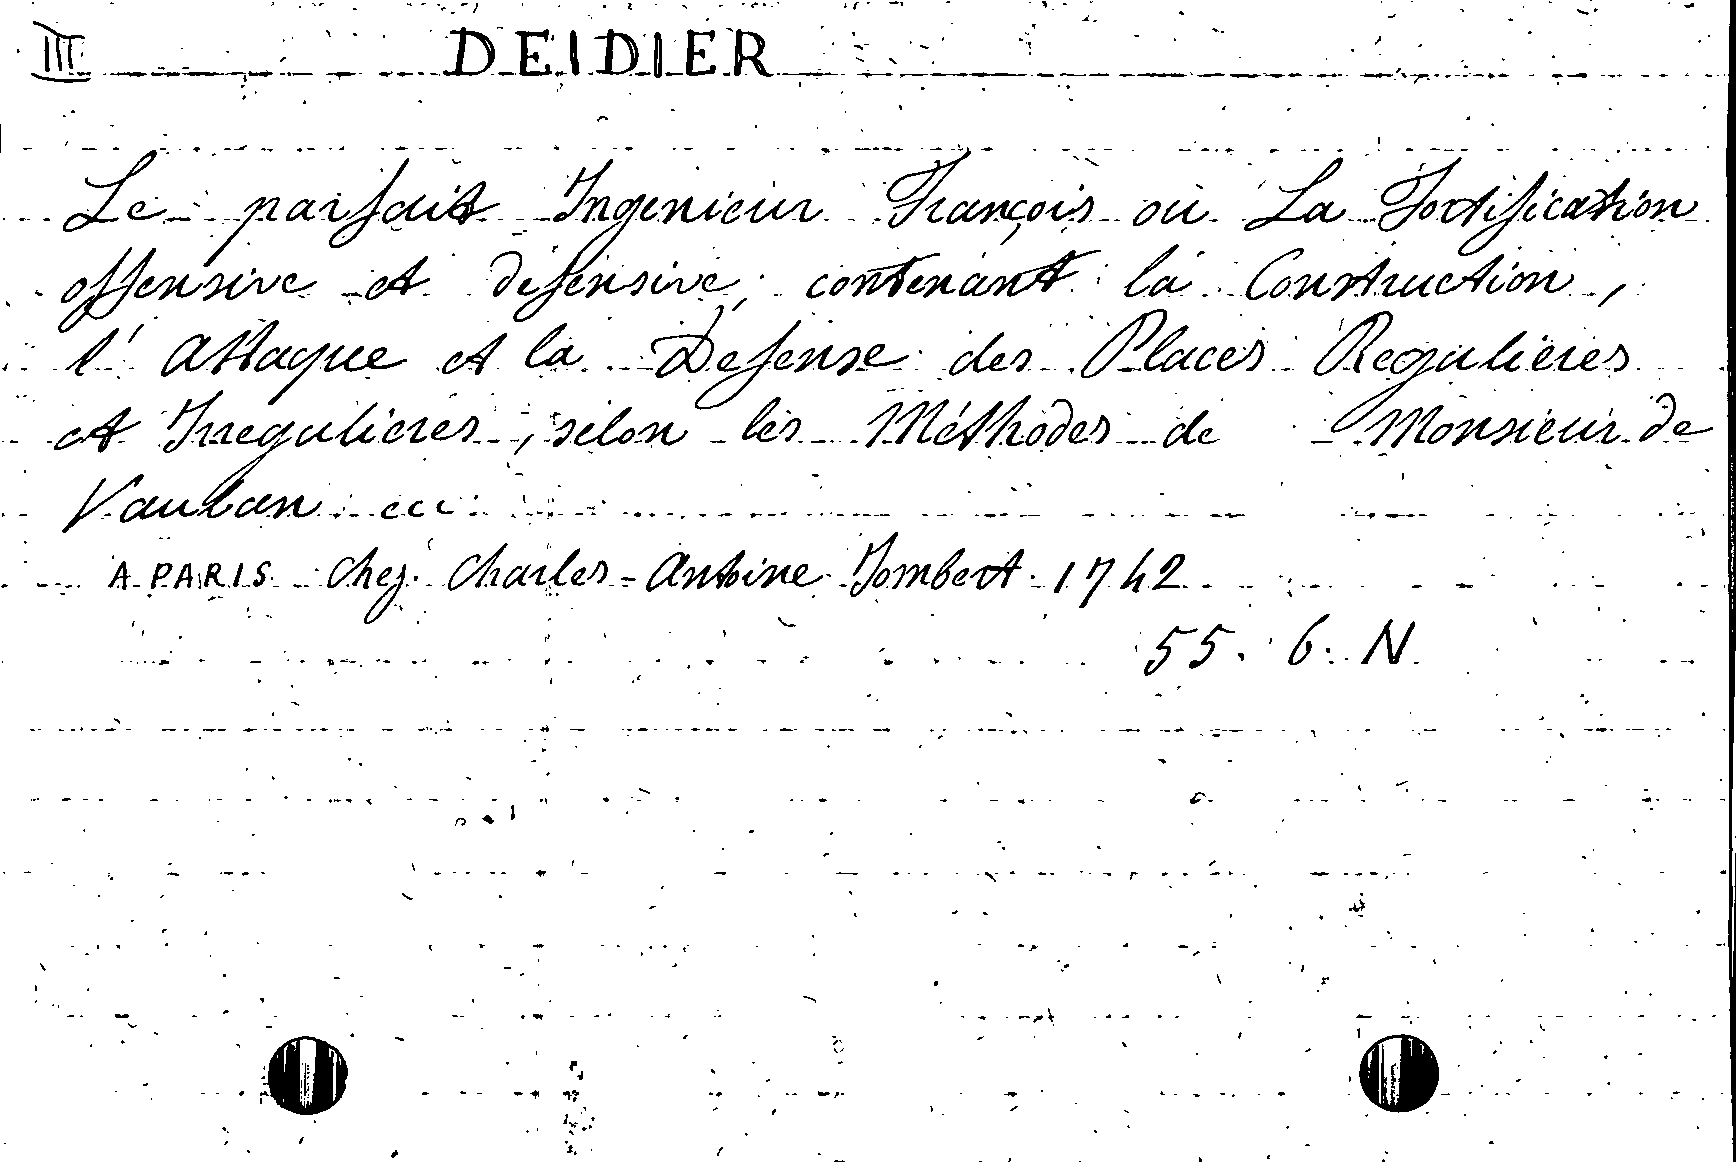 III DEIDIER
Le parfait Ingenieur François ou La Fortification
offensive et défensive, contenant la Construction,
l'Attaque et la Défense des Places Regulieres
et Irregulieres, selon les Méthodes de Monsieur de
Vauban ecc
A PARIS chez Charles-Antoine Jombert 1742
55. 6. N